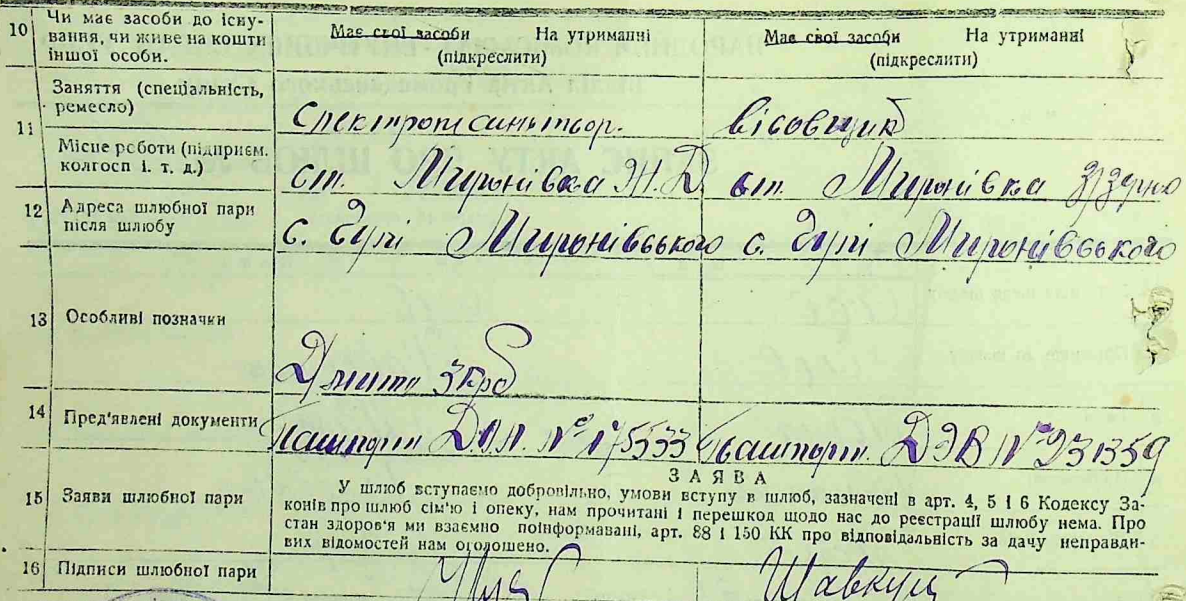 10 Чи має засоби до існу-
вання, чи живе на кошти
іншої особи.
Має свої засоби На утриманні
(підкреслити)
Має свої засоби На утриманні
(підкреслити)
11 Заняття (спеціальність,
ремесло)
вісовщик
Місце роботи (підприєм.
колгосп і. т. д.)
ст. Миронівка Ж.Д.
ст. Миронівка
12 Адреса шлюбної пари
після шлюбу
с. Миронівського
с. Миронівського
13 Особливі позначки
14 Пред'явлені документи
Пашпорт № 175333
Пашпорт ДЭВ № 231359
15 Заяви шлюбної пари
ЗАЯВА
У шлюб вступаємо добровільно, умови вступу в шлюб, зазначені в арт. 4, 5 і 6 Кодексу За-
конів про шлюб сім'ю і опеку, нам прочитані і перешкод щодо нас до реєстрації шлюбу нема. Про
стан здоров'я ми взаємно поінформавані, арт. 88 і 150 КК про відповідальність за дачу неправди-
вих відомостей нам оголошено.
16 Підписи шлюбної пари